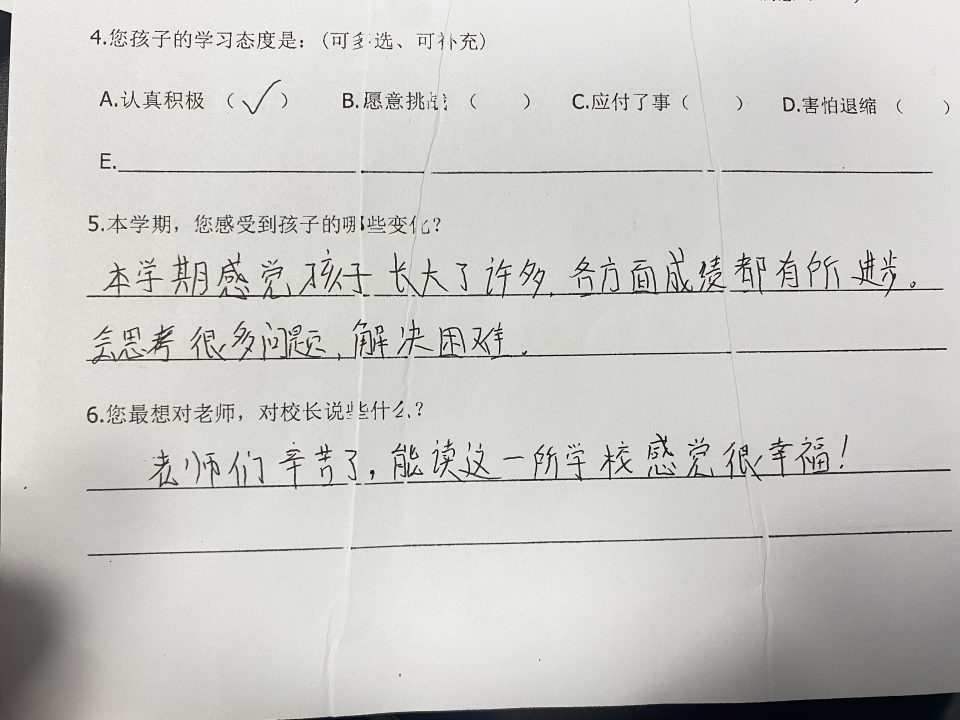 4.您孩子的学习态度是：(可多选、可补充)
A.认真积极 （✓） B.愿意挑战 （ ） C.应付了事（ ） D.害怕退缩 （ ）
E.
5.本学期，您感受到孩子的哪些变化？
本学期感觉孩子长大了许多,各方面成绩都有所进步。
会思考很多问题,解决困难.
6.您最想对老师，对校长说些什么？
老师们辛苦了,能读这一所学校感觉很幸福!